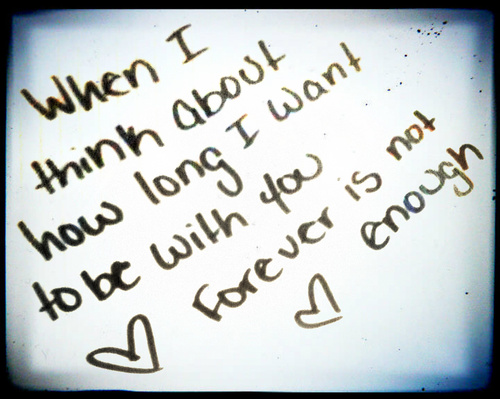 When I
think about
how long I want
to be with you
Forever is not
enough